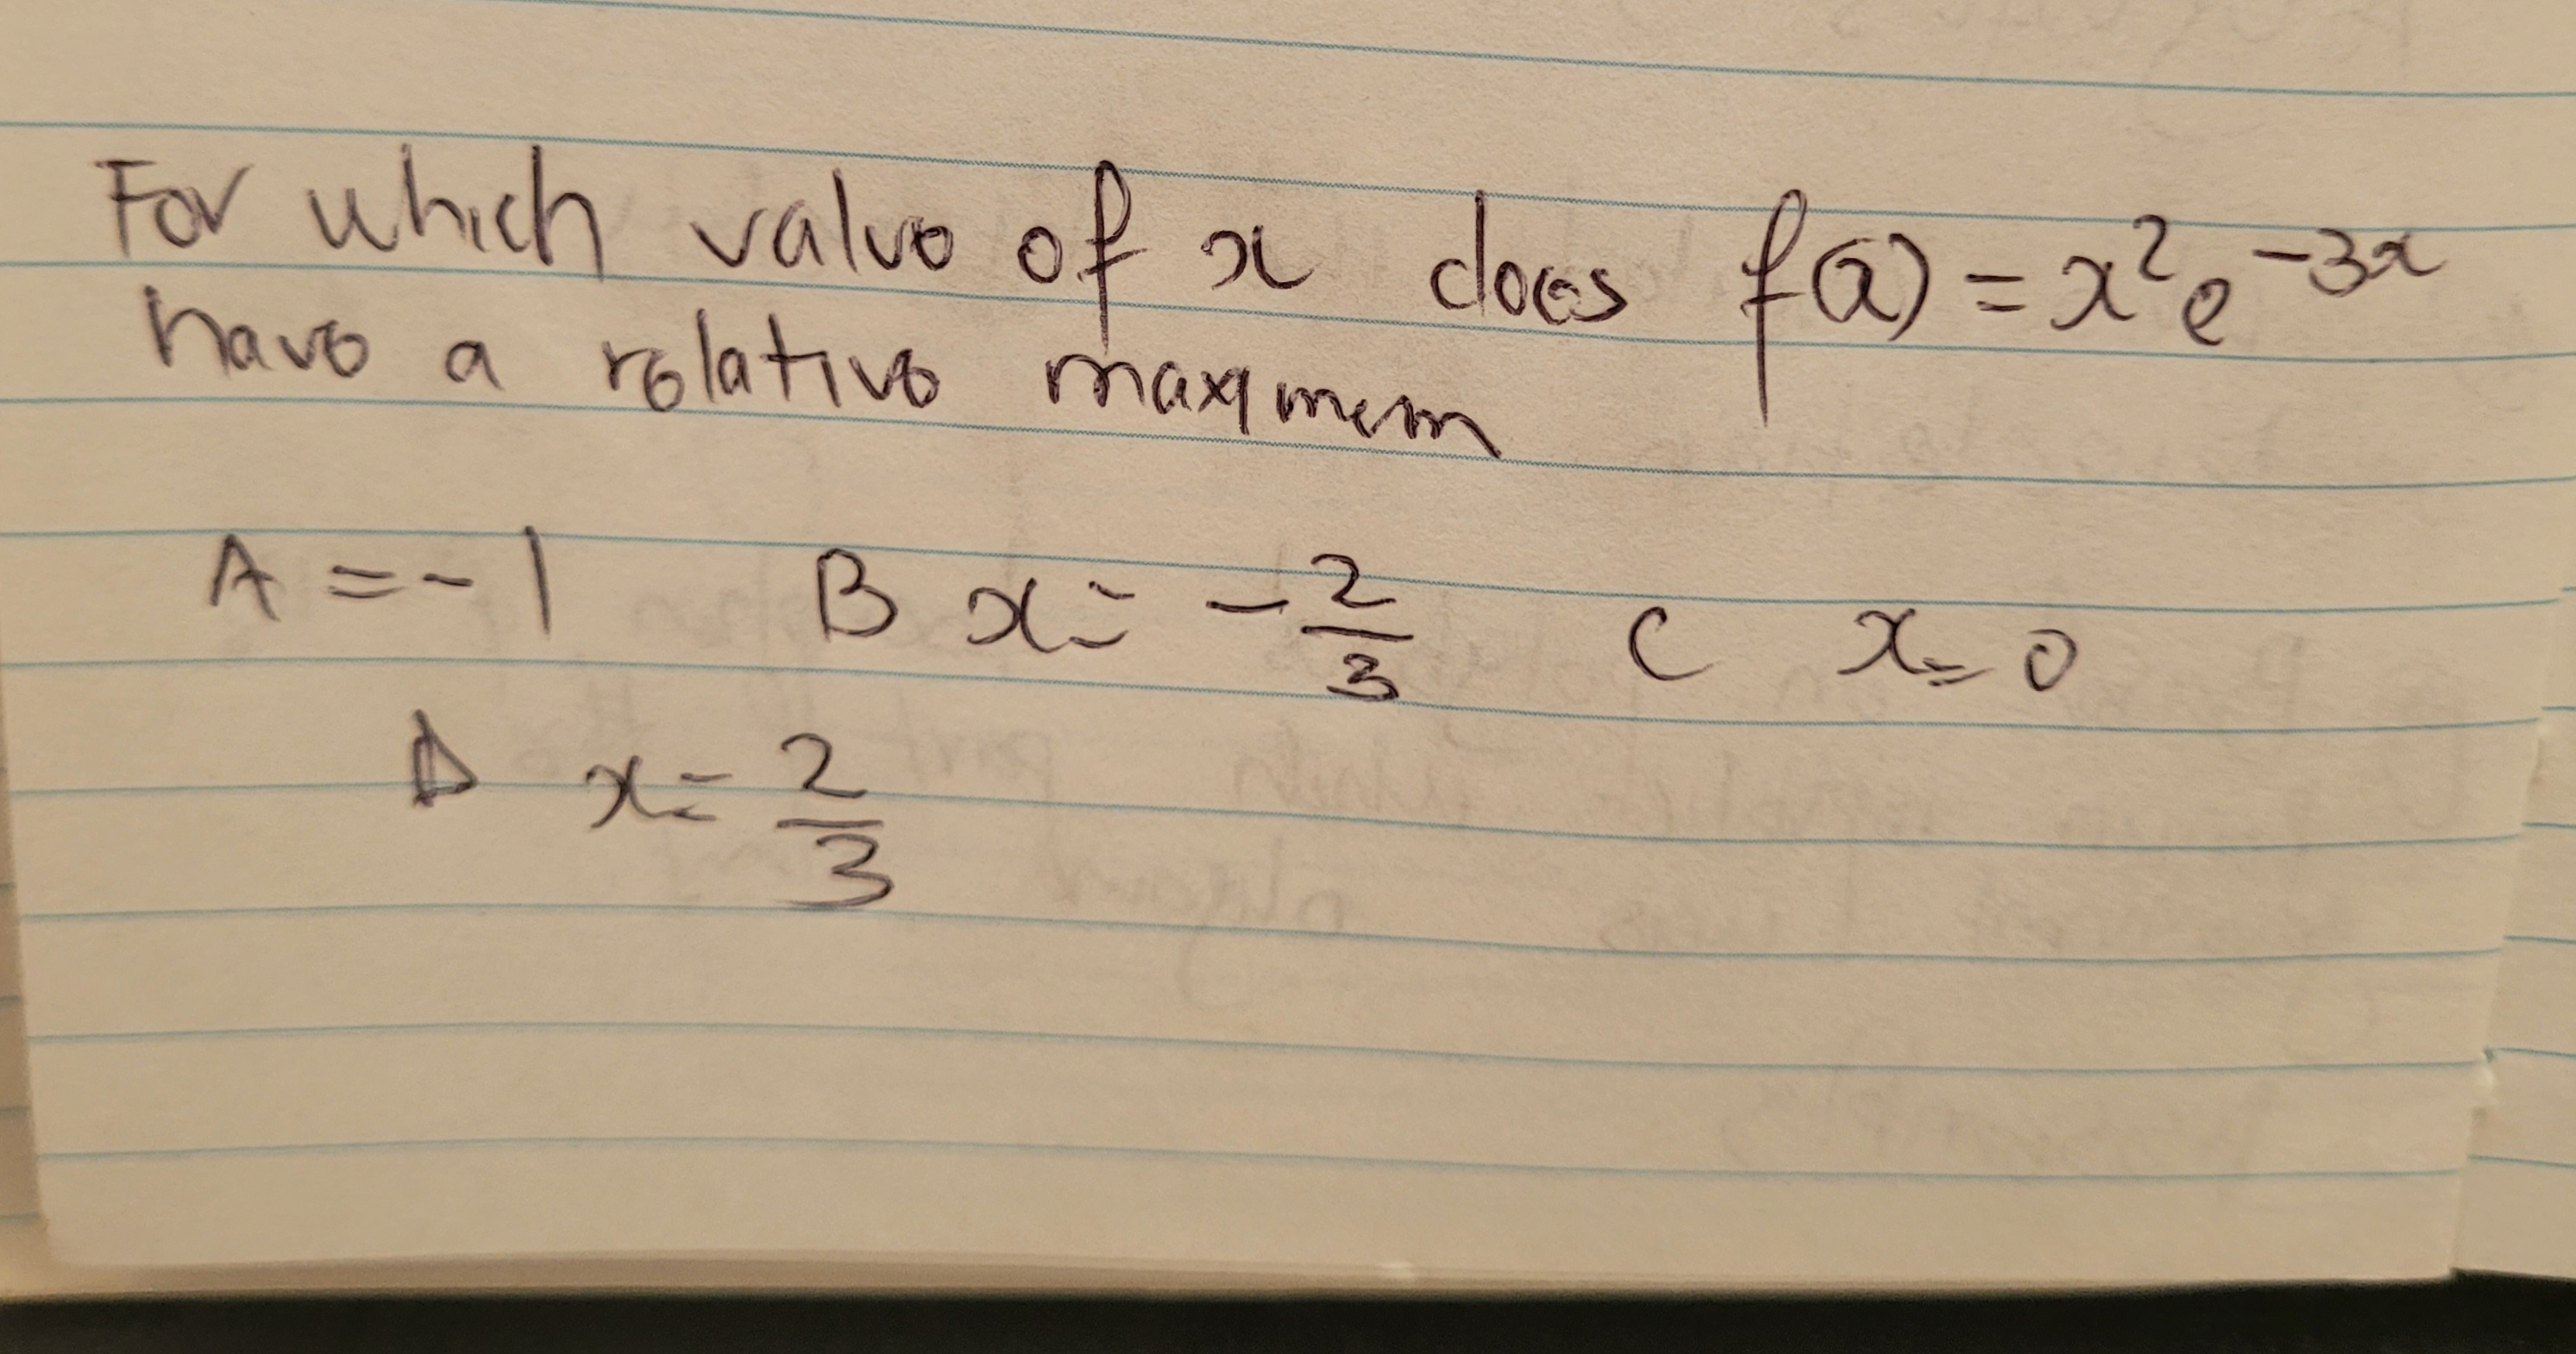 For which value of x does f(x) = x²e⁻³ˣ
have a relative maximem
A = -1 B x = -2/3 C x = 0
D x = 2/3